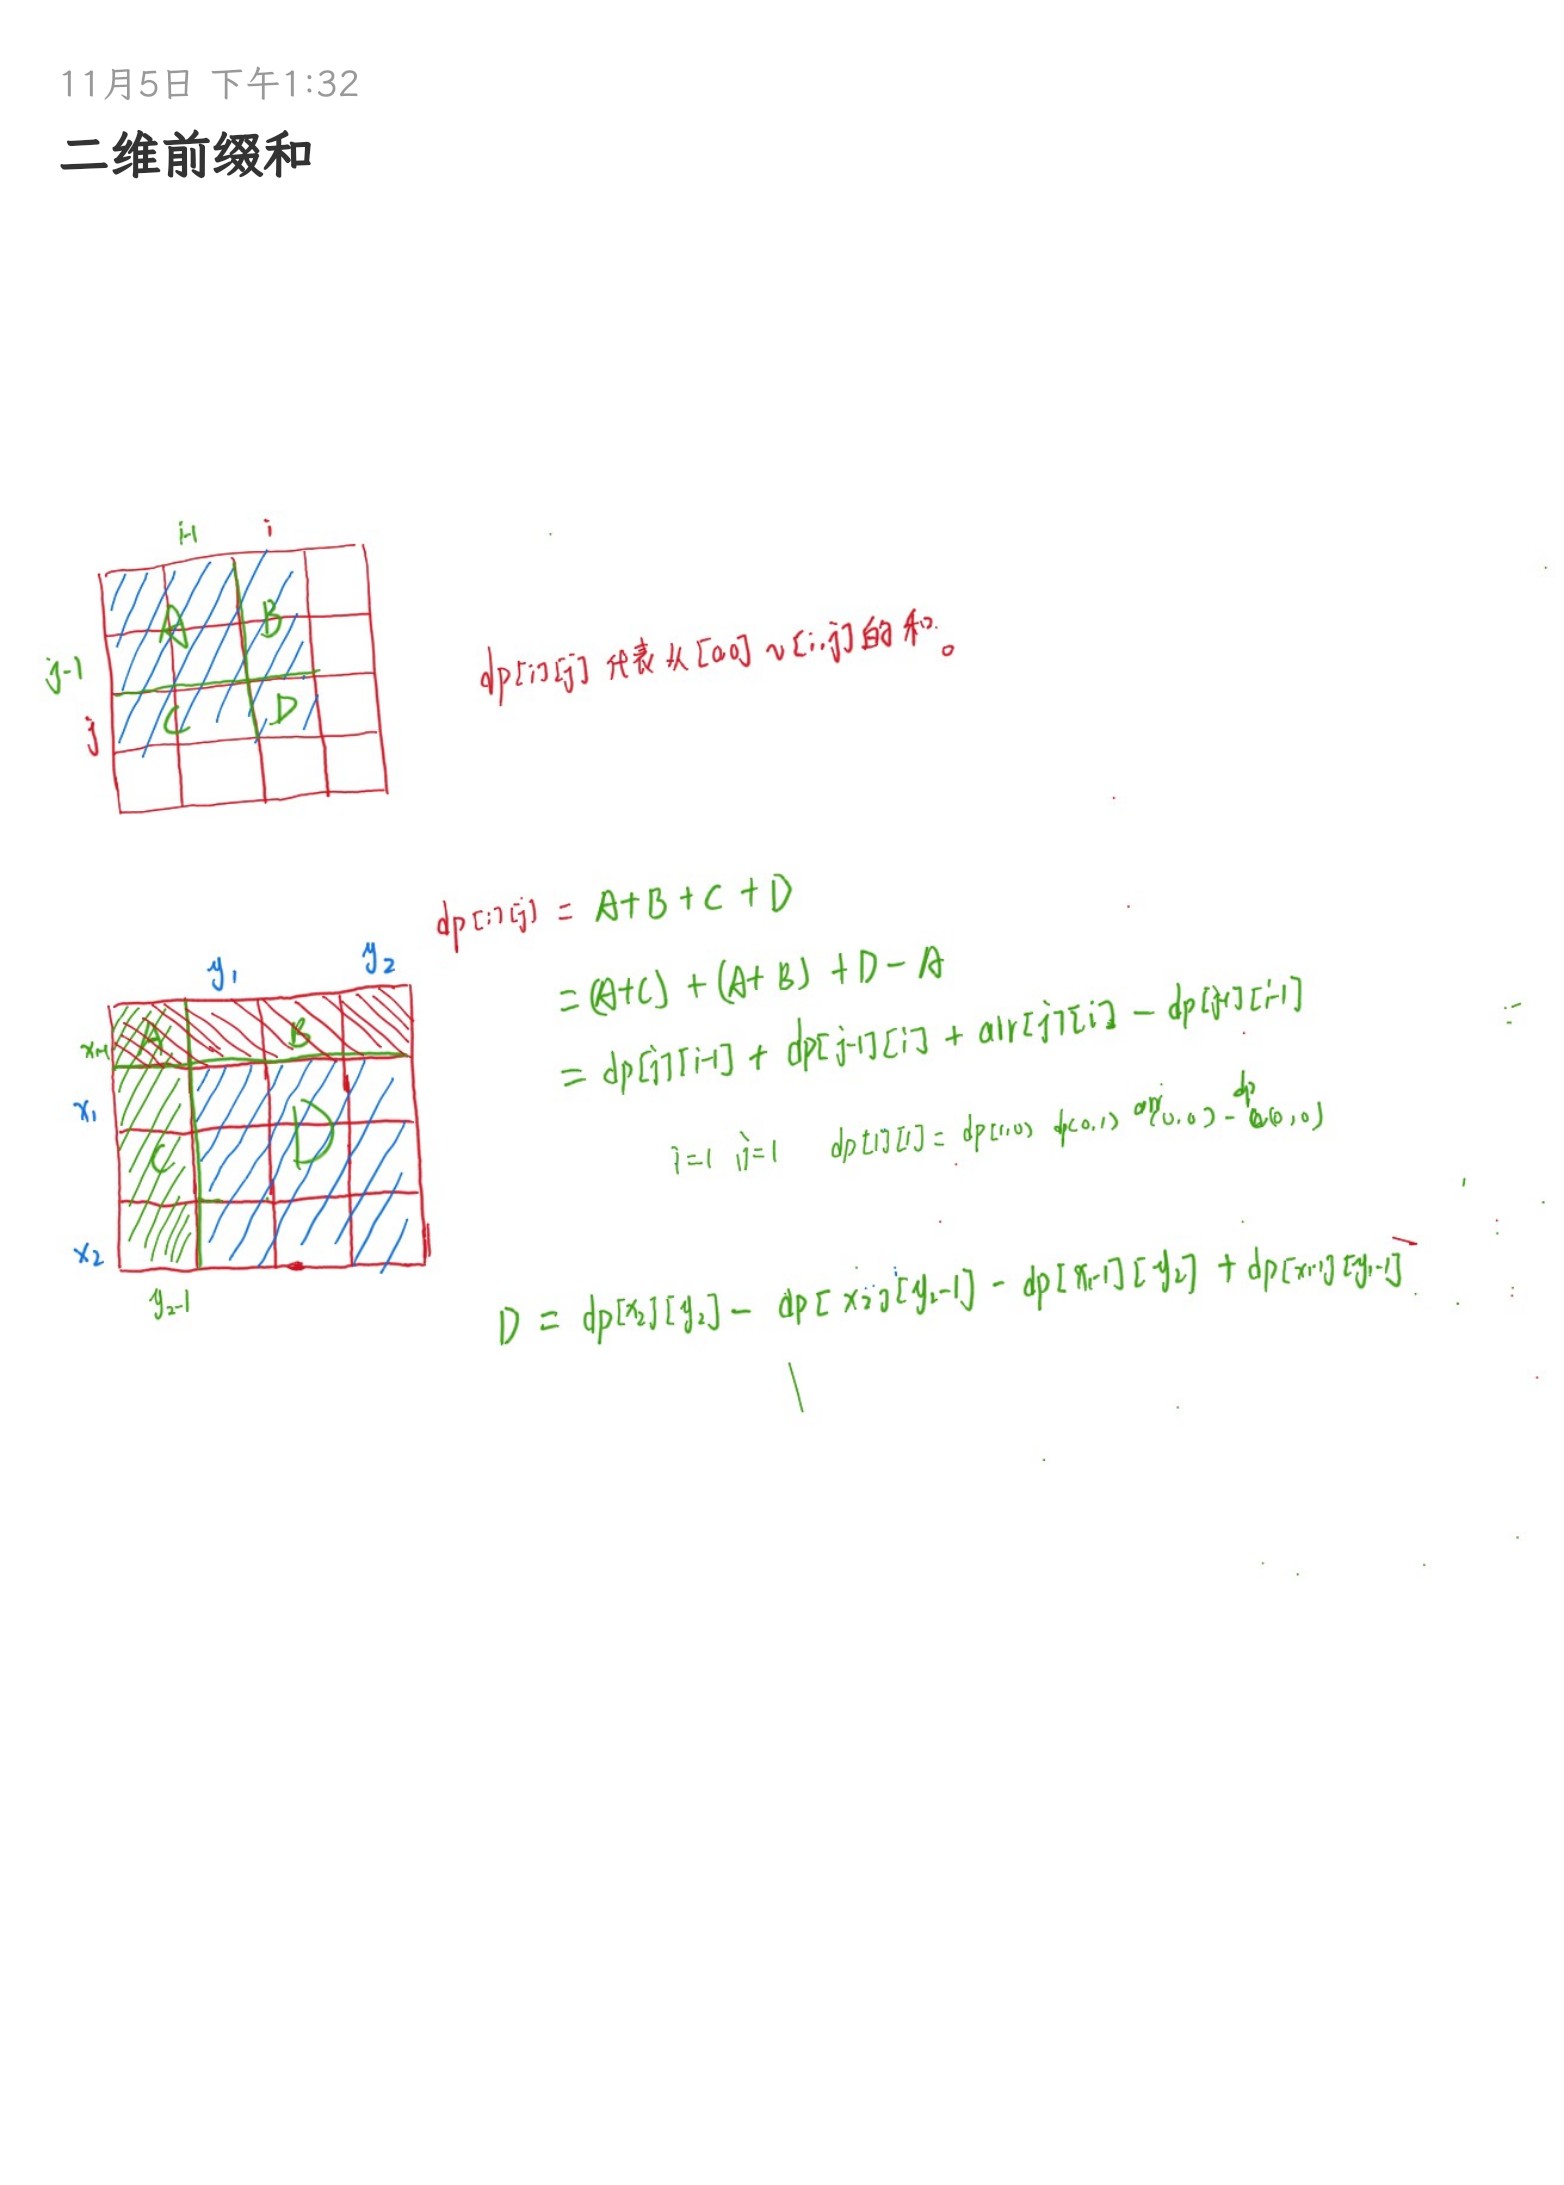 11月5日 下午1:32
二维前缀和
i-1 i
A B
j-1
C D
j
dp[i][j] 代表从[0 0] ~ [i..j]的和。
dp[i][j] = A+B+C+D
= (A+C) + (A+B) + D - A
= dp[j][i-1] + dp[j-1][i] + arr[j][i] - dp[j-1][i-1]
i=1 j=1 dp[1][1] = dp(1,0) dp(0,1) arr(0,0) - dp(0,0)
y1 y2
x1-1 A B
x1
C D
x2
y2-1
D = dp[x2][y2] - dp[x2][y2-1] - dp[x1-1][y2] + dp[x1-1][y1-1]